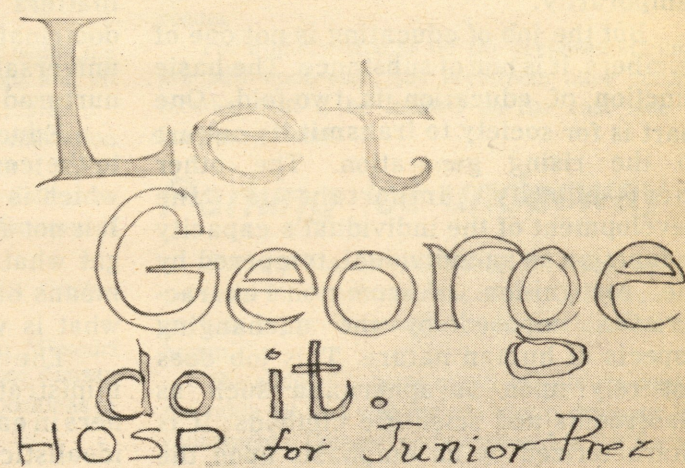 Let
George
do it.
HOSP for Junior Prez